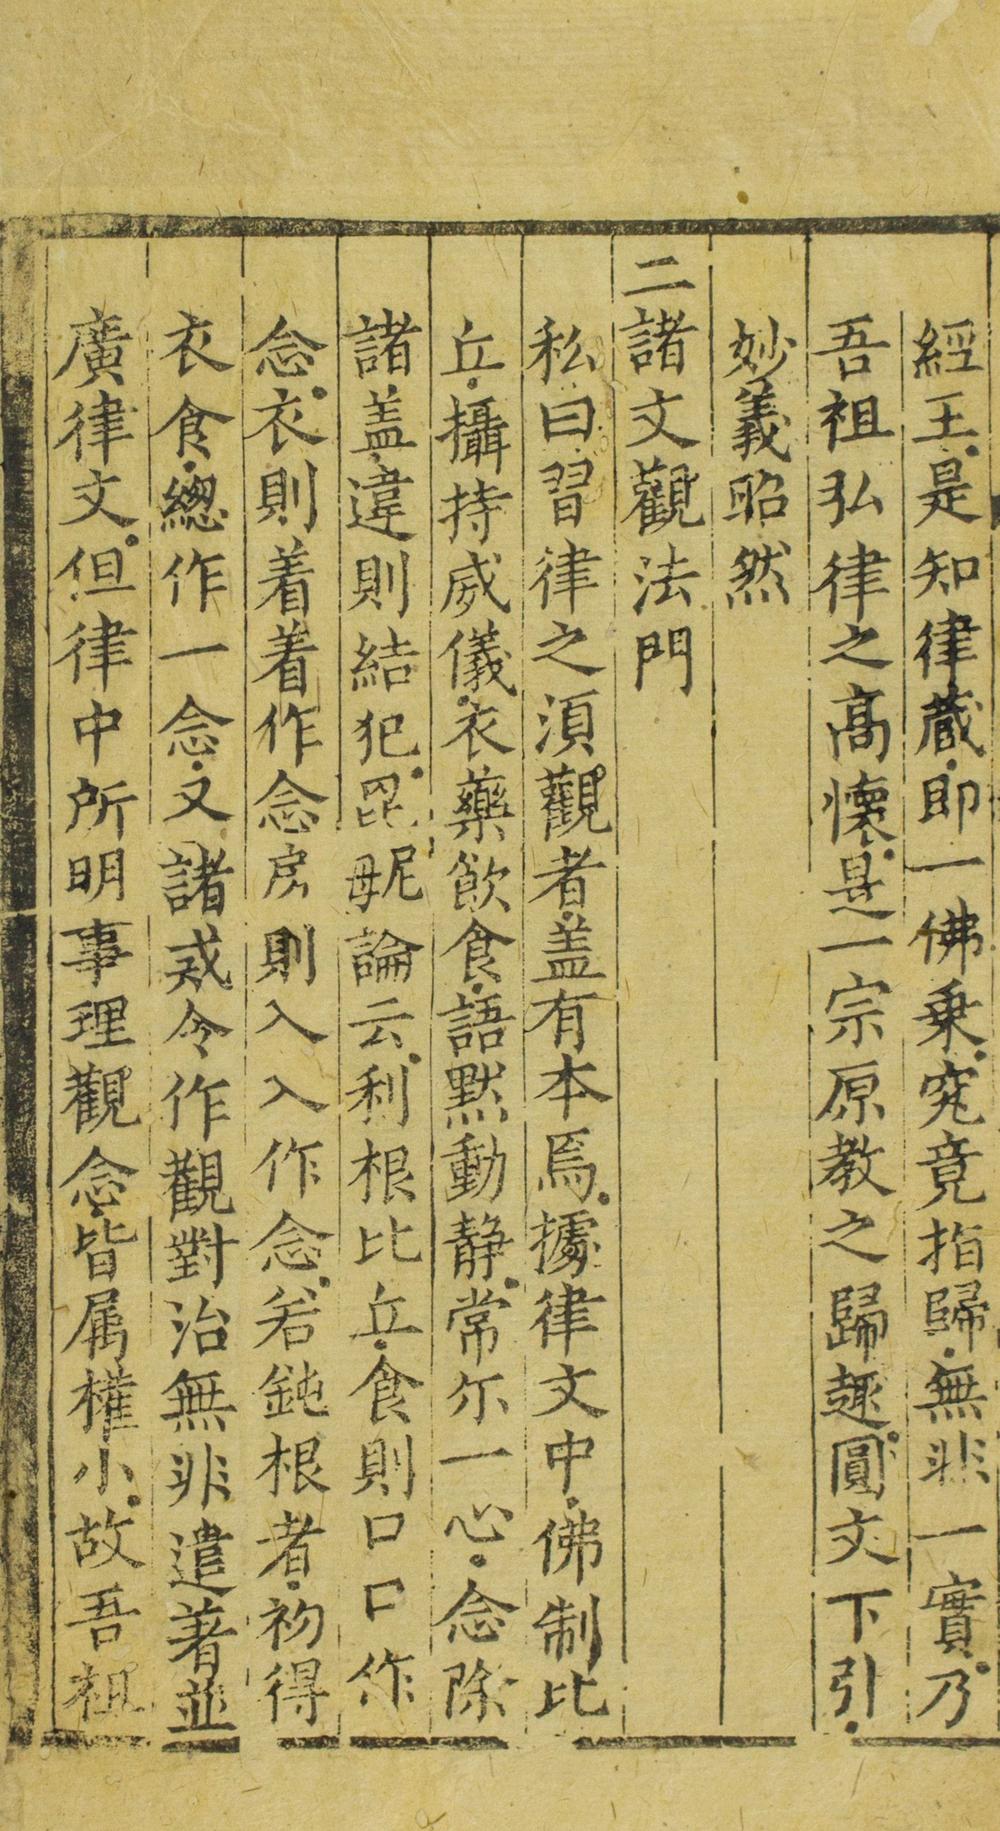 經王是知律蔵即一佛乗究竟指歸無非一實乃
吾祖弘律之髙懷是一宗原教之歸趣圓文下引
妙義昭然
二諸文觀法門
私曰習律之湏觀者盖有本焉據律文中佛制比
丘攝持威儀衣藥飲食語默動静常尓一心念除
諸盖違則結犯毘𣭜論云利根比丘食則口口作
念衣則着着作念房則入入作念若鈍根者初得
衣食總作一念又諸戒令作觀對治無非遣著並
廣律文但律中所明事理觀念皆属權小故吾祖